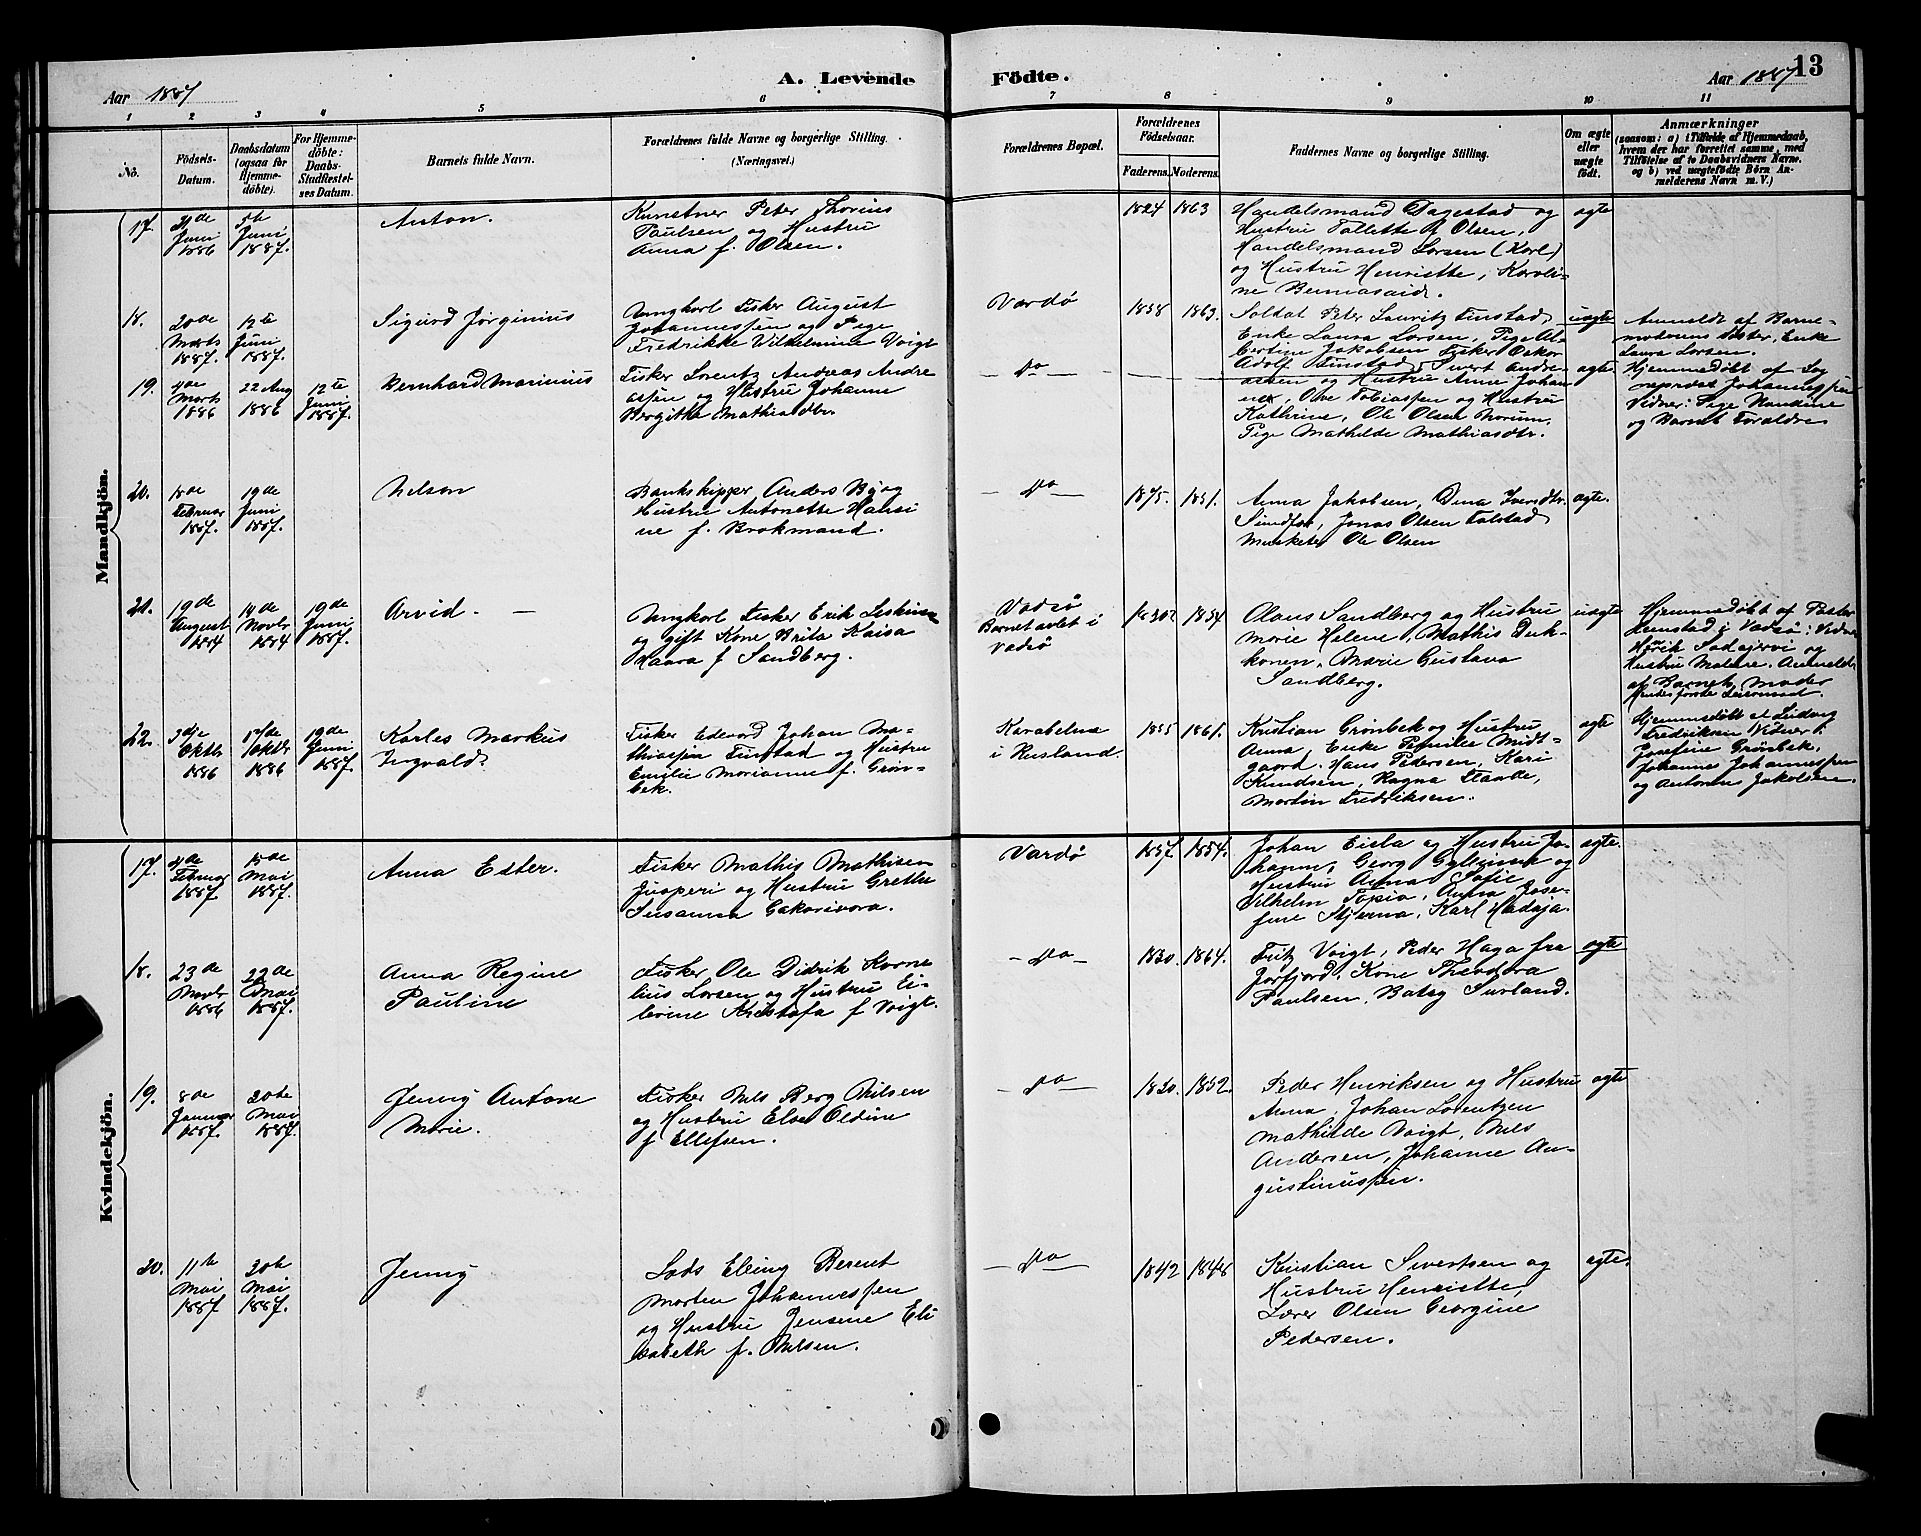 Aar 1887
A. Levende
Födte.
Aar 1887
13
1 2 3 4 5 6 7 8 9 10 11
No.
Födsels-
Datum.
Daabsdatum
(ogsaa for
Hjemme-
döbte).
For Hjemme-
döbte:
Daabs
Stadfæstel-
ses Datum.
Barnets fulde Navn.
Forældrenes fulde Navne og borgerlige Stilling.
(Næringsvei.)
Forældrenes Bopæl.
Forældrenes
Födselsaar.
Faderens. Moderens.
Faddernes Navne og borgerlige Stilling.
Om ægte
eller
uægte
födt.
Anmærkninger
(saasom: a) i Tilfælde af Hjemmedaab,
hvem der har forrettet samme, med
Tilföielse af to Daabsvidners Navne.
og b) ved uægtefödte Börn An-
melderens Navn m. V.)
Mandkjön.
17.
Juni
1886
Juni
1887.
Anton.
Kunstner Peter Thorius
Paulsen og Hustru
Anna f. Olsen.
1824 1863
Handelsmand Fagestad og
Hustru Tallette f Olsen,
Handelsmand Larsen (Karl)
og Hustru Henriette, Karoli-
ne
ægte
18.
20de
Marts
1887.
12te
Juni
1887.
Sigurd Jørginius
Ungkarl Fisker August
Johannessen og Pige
Fredrikke Vilhelmine Voigt
Vardø
1858 1863.
Soldat Peter Lauritz Finstad
Enke Laura Larsen, Pige Al-
bertine Jakobsen Fisker Oskar
Adolf Finstad
uægte
Anmeldt af Barne-
moderens Søster, Enke
Laura Larsen.
19.
Marts
1886
22 Aug
1886
12te
Juni
1887.
Bernhard Marinius
Fisker Lorentz Andreas Andre
assen og Hustru Johanne
Bergitte Mathiasdtr
do
Sivert Andre-
assen og Hustru Anne Johan
ne, Ole Tobiassen og Hustru
Kathrine, Ole Olsen Norum,
Pige Mathilde Mathiasdtr.
ægte
Hjemmedøbt af Log
represt Johannessen
Vidner: Pige Hankine
og Barnets Forældre
20.
18de
Februar
1887.
19de
Juni
1887.
Nelson
Bankskipper Anders By og
Hustru Antonette Hansi
ne f. Brokmand.
do
1875. 1851.
Anna Jakobsen, Dina Iversdtr.
Sundfær, Jonas Olsen Falstad
Musketer Ole Olsen
ægte.
21.
19de
August
1884
14de
Novbr
1884
19de
Juni
1887.
Arvid.
Ungkarl Fisker Erik Leskinen
og gift Kone Brita Kaisa
Haara f Sandberg.
Vadsø
Barnet avlet i
Vadsø
1854
Olaus Sandberg og Hustru
Marie Helene, Mathis Duk-
konen, Marie Gustava
Sandberg.
uægte
Hjemmedøbt af Pastor
Hemstad i Vadsø: Vidner
Hustru Malene. Anmeldt
af Barnets Moder
Hendes første Leiermaal.
22.
3dje
Oktbr
1886
17de
Oktbr
1886
19de
Juni
1887.
Karles Markus
Ingvald.
Fisker Edevard Johan Ma-
thiassen Finstad og Hustru
Emilie Marianne f. Grøn-
bek.
Karabelna
i Rusland.
1855 1861.
Kristian Grønbek og Hustru
Anna, Enke Pernille Midt-
gaard. Hans Pedersen, Kari
Knudsen, Ragna Staade,
Martin Fredriksen.
ægte
Hjemmedøbt af Ludvig
Fredriksen Vidner:
Josefine Grønbek,
Johanne Johannessen
og Antonus Jakobsen.
Kvindekjön.
17.
Februar
1887
15de
Mai
1887.
Anna Ester.
Fisker Mathis Mathisen
Juoperi og Hustru Grethe
Susanna Gakorivora.
Vardø
1857. 1854.
Johan Eiela og Hustru Jo-
hanne, Georg
Hustru Anna Sofie
Vilhelm Tapio, Anna Jose-
fine Stjerna, Karl Hadaja.
ægte.
18.
23de
Novbr
1886
22de
Mai
1887.
Anna Regine
Pauline
Fisker Ole Didrik Korne
lius Larsen og Hustru Ei-
lerine Kristofa f Voigt.
do
1830. 1864.
Fritz Voigt, Peder Haga fra
Jarfjord. Kone Theodora
Paulsen, Batsy Surland.
ægte
19.
8de
Januar
1887.
20de
Mai
1887.
Jenny Antone
Marie.
Fisker Nils Berg Nilsen
og Hustru Else Oldine
f Ellefsen.
do
1830. 1852.
Peder Henriksen og Hustru
Anna, Johan Lorentzen
Mathilde Voigt, Nils
Andersen, Johanne Au-
gustinussen.
ægte
20.
11te
Mai
1887.
30te
Mai
1887.
Jenny
Lods Eling Berent
Morten Johannessen
og Hustru Jensine Eli
sabeth f. Nilsen.
do
1842 1848
Kristian Sivertsen og
Hustru Henriette,
Lærer Olsen Georgine
Pedersen.
ægte.